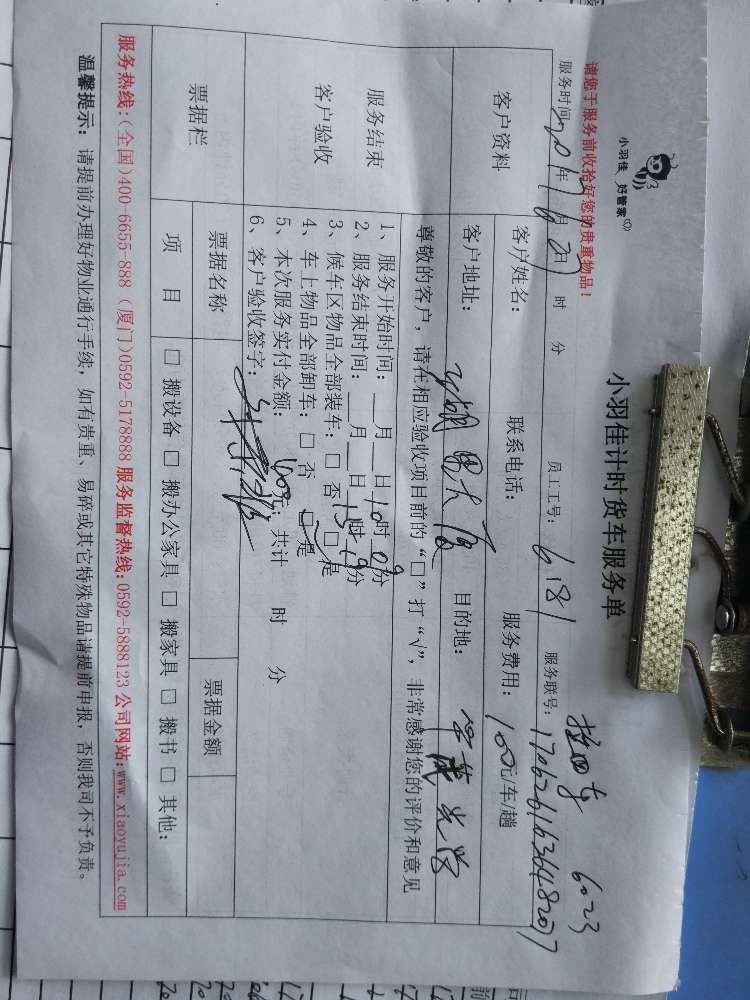 小羽佳 好管家
小羽佳计时货车服务单
请您于服务前收拾好您的贵重物品！
6023
服务时间 2017年 6月 27日 时 分 员工工号：6181 服务联号：
客户资料
客户姓名： 联系电话： 服务费用：100元/车/趟
客户地址： 目的地：
尊敬的客户，请在相应验收项目前的“□”打“√”，非常感谢您的评价和意见
服务结束
客户验收
1、服务开始时间：__月__日10时09分
2、服务结束时间：__月__日
3、候车区物品全部装车：□ 否 □ 是
4、车上物品全部卸车：□ 否 □ 是
5、本次服务实付金额：100元；共计 时 分
6、客户验收签字：
票据栏
票据名称 票据金额
项 目 □ 搬设备 □ 搬办公家具 □ 搬家具 □ 搬书 □ 其他：
服务热线：(全国)400-6655-888 (厦门)0592-5178888 服务监督热线：0592-5888123 公司网站：www.xiaoyujia.com
温馨提示：请提前办理好物业通行手续，如有贵重、易碎或其它特殊物品请提前申报，否则我司不予负责。